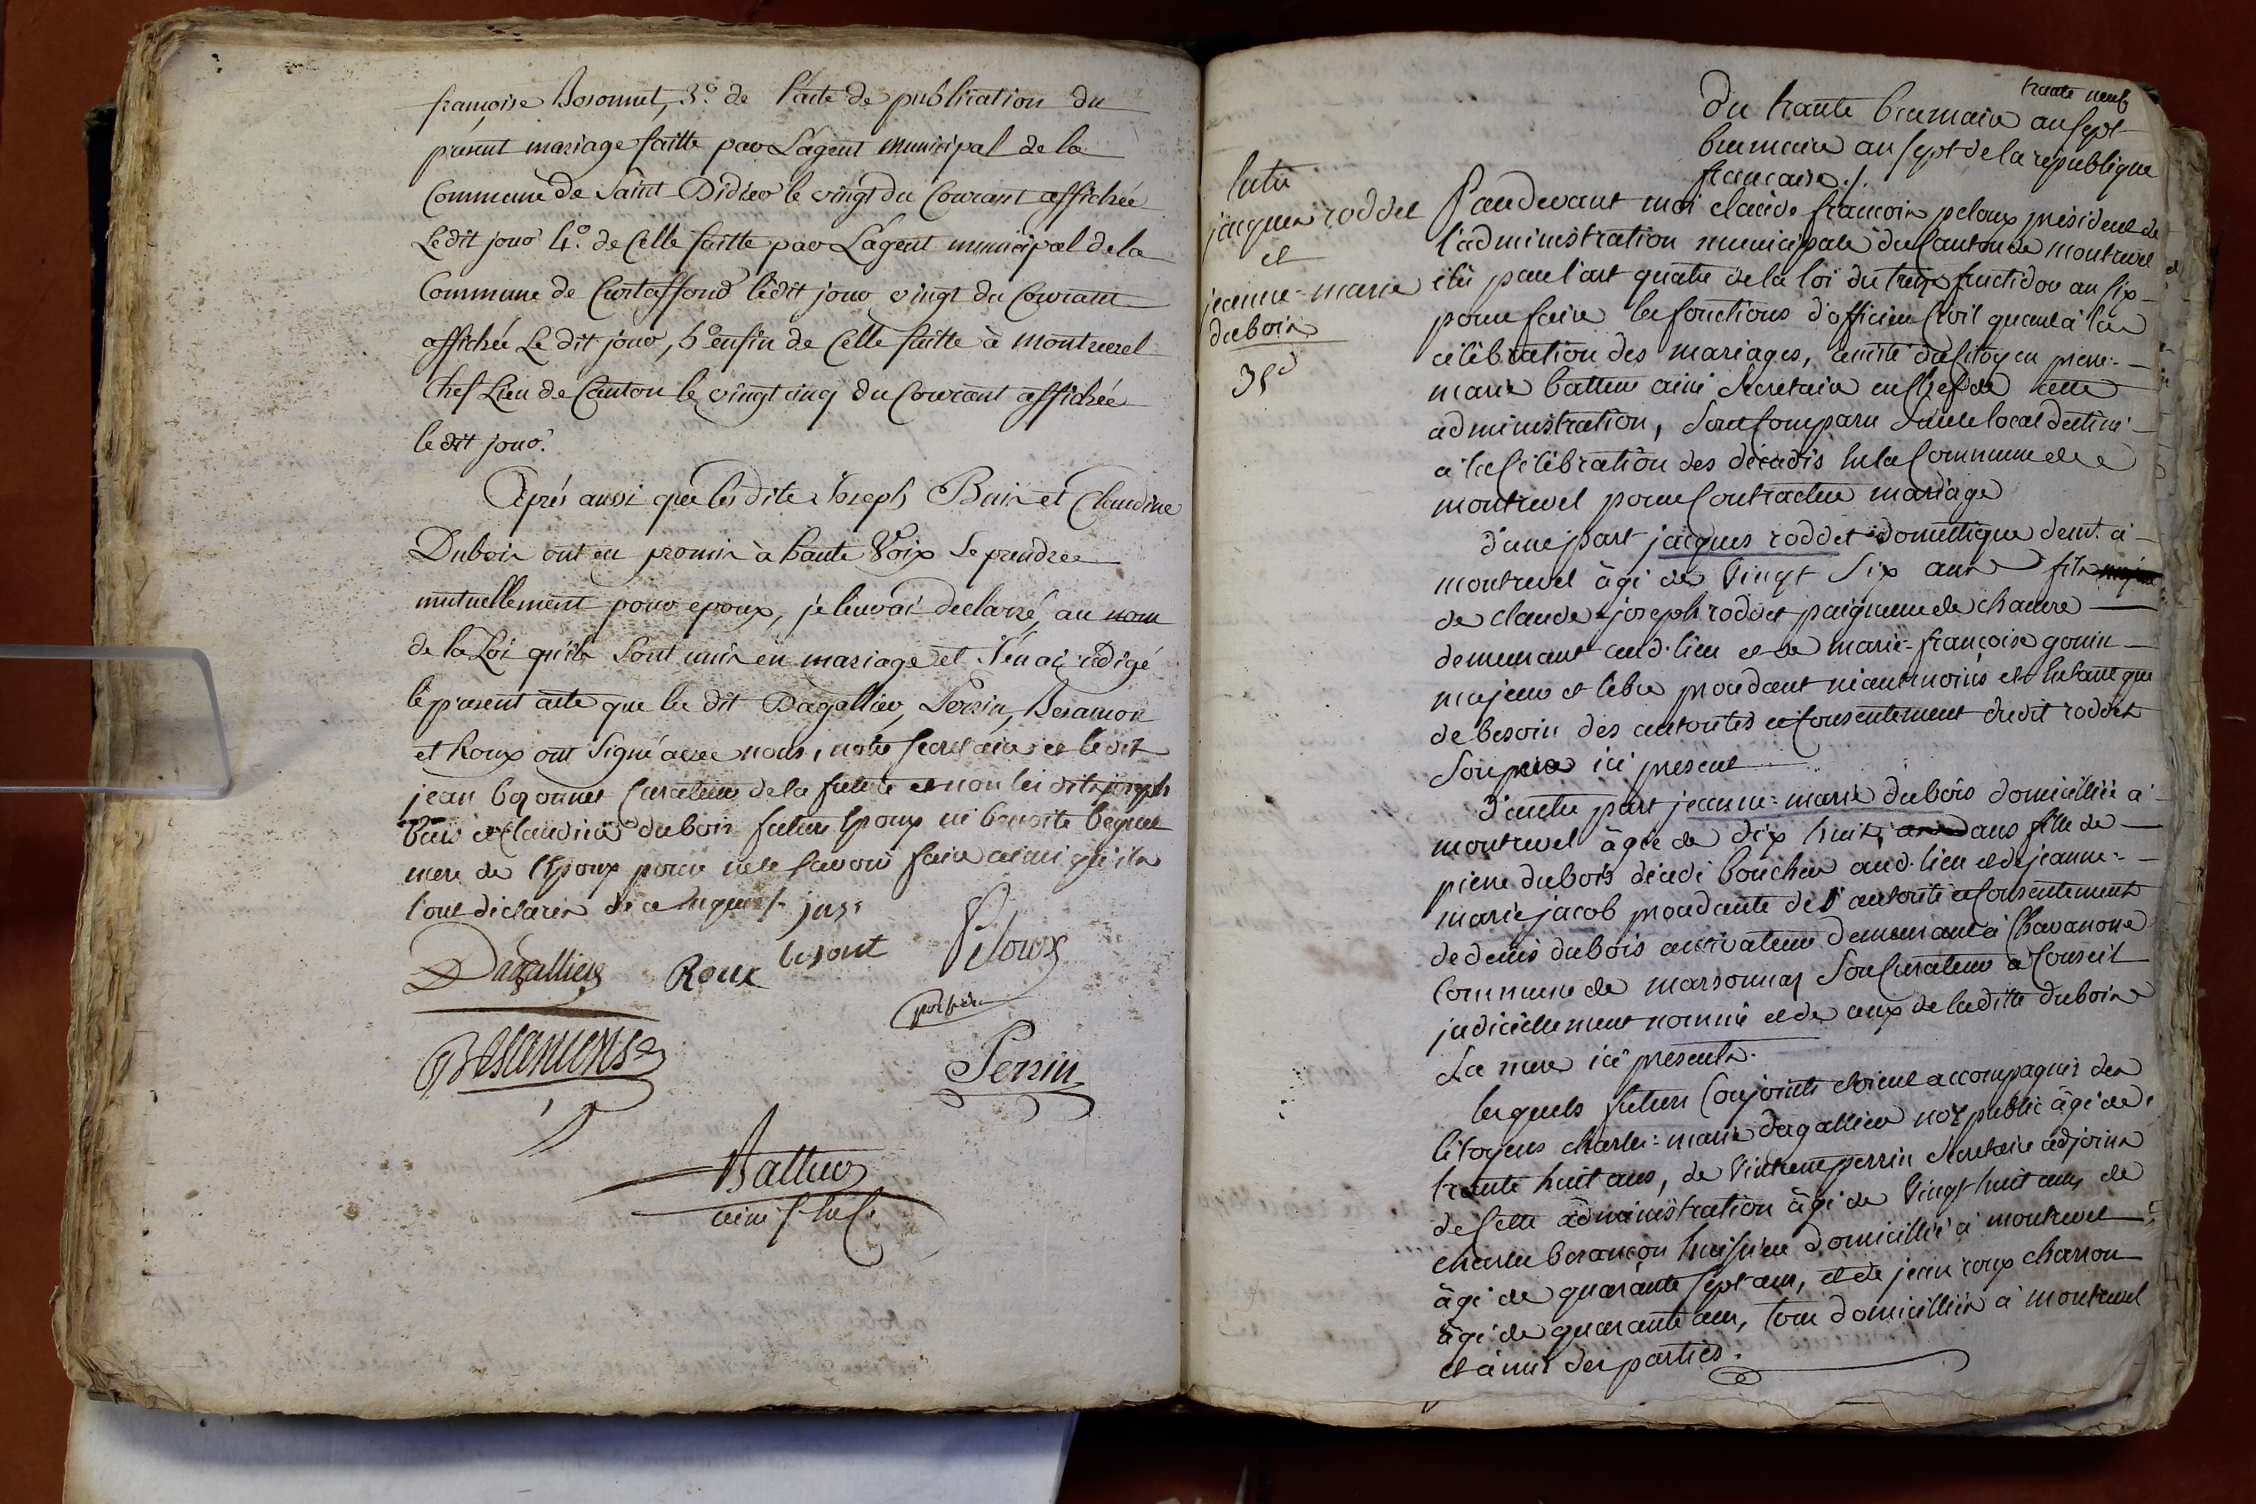 françoise Bosonnet, 3.° de l'acte de publication du
présent mariage faitte par L'agent municipal de la
Commune de Saint Didier le vingt du Courant affichée
Le dit jour 4.° de Celle faitte par L'agent municipal de la
Commune de Curtaffond le dit jour vingt du Courant
affichée Le dit jour, 5° enfin de Celle faitte à montrevel
Chef Lieu de Canton le vingt cinq du Courant affichée
le dit jour.
Après aussi que les dits Joseph Buis et Claudine
Dubois ont eu promis à haute Voix Se prendre
mutuellement pour epoux, je leur ai declaré, au nom
de la Loi qu'ils Sont unis en mariage et J'en ai rédigé
le présent acte que les dit Dagallier, Perrin, Besançon
et Roux ont Signé avec nous, notre secretaire et le dit
jean bozonnet Curateur de la future et non les dits joseph
buis et Claudine dubois futurs Epoux ni benoite
mere de l'Epoux pour ne le savoir faire ainsi qu'ils
l'ont déclarés de ce enquis
Dagallier Roux Peloux
Besançons
Perrin
Batteur
ainé
trente neuf
Du trante brumaire an sept
brumaire an sept de la république
française ./.
Entre
jacques roddet
et
jeanne-marie
dubois
Pardevant moi claude françois peloux président de
l'administration municipale du Canton de montrevel
élû par l'art quatre de la loi du treize fructidor an six
pour faire les fonctions d'officier Civil quant à la
célébration des mariages, assisté du Citoyen pierre-
marie batteur ainé Secretaire en Chef de cette
administration, Sont Comparu dans le local destiné
à la Célébration des décadis en la Commune de
montrevel pour Contracter mariage
d'une part jacques roddet domestique demt. à
montrevel âgé de Vingt Six ans fils
de claude-joseph roddet paigneur de chanvre
demeurant aud. lieu et de marie-françoise gonin
majeur et libre procedant néantmoins et entant que
de besoin des autorités et Consentement dudit roddet
Son pere ici present
D'autre part jeanne-marie dubois domicilliée à
montrevel âgée de dix huit ans fille de
pierre dubois décédé boucher aud. lieu et de jeanne-
marie jacob procedante de l'autorité et Consentement
de denis dubois cultivateur demeurant à Chavanosse
Commune de marsonnas Son Curateur et Conseil
judiciellement nommé et de ceux de laditte dubois
Sa mere ici presents.
lesquels futurs Conjoints étoient accompagnés des
Citoyens charles-marie dagallier not.re public âgé de
trante huit ans, de perrin Secretaire adjoint
de Cette administration âgé de Vingt huit ans, de
charles besançon huissier domicillié à montrevel
âgé de quarante sept ans, et de jean roux charron
âgé de quarante ans, tous domicilliés à montrevel
et amis des parties.